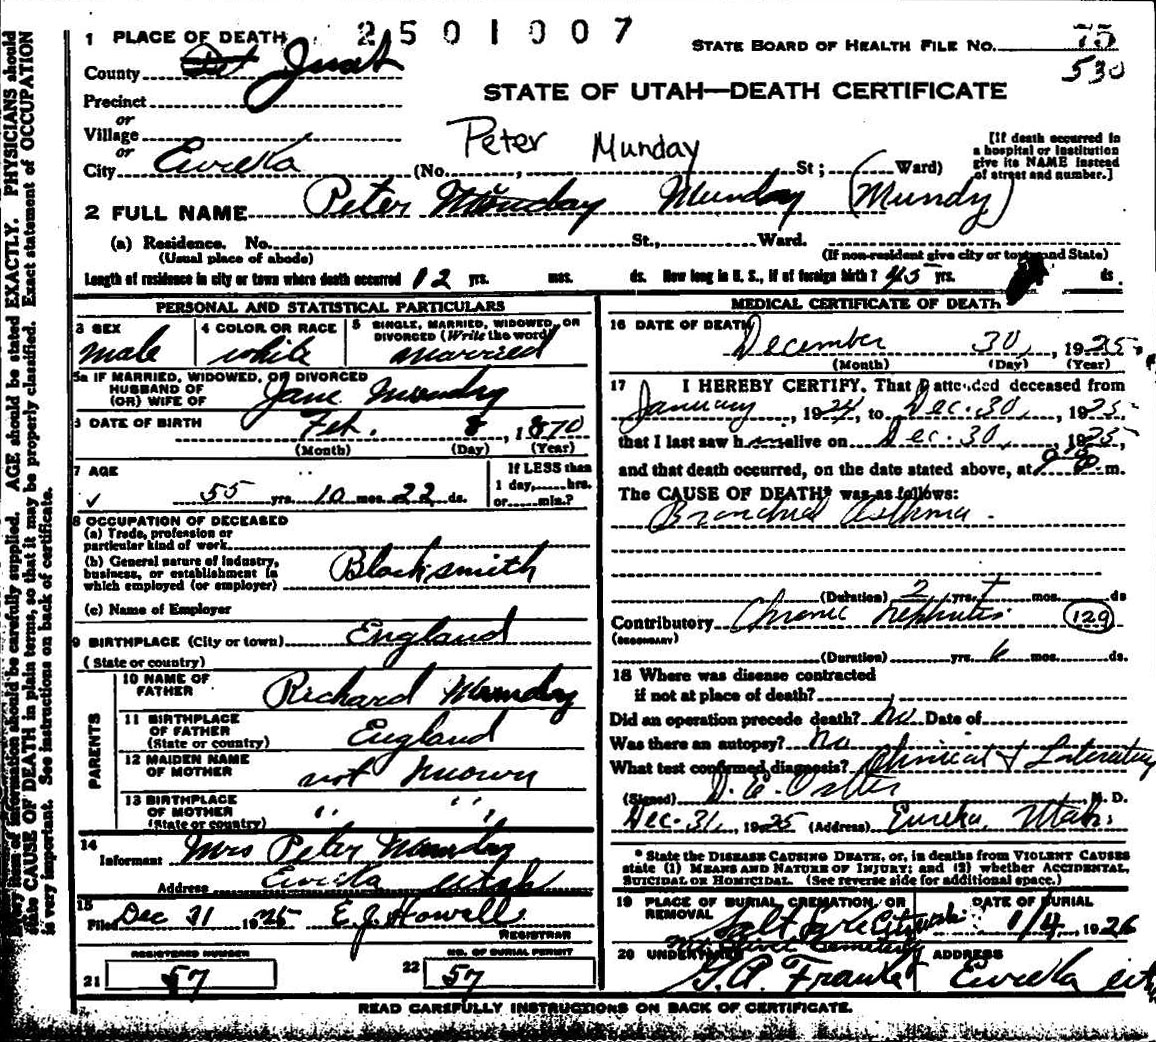 2501007
1 PLACE OF DEATH
STATE BOARD OF HEALTH FILE No. 75
530
County Juab
Precinct
or
Village
or
City Eureka
STATE OF UTAH—DEATH CERTIFICATE
Peter Munday
(No. , St; Ward)
[If death occurred in
a hospital or institution
give its NAME instead
of street and number.]
2 FULL NAME Peter Munday Munday (Mundy)
(a) Residence. No. St., Ward.
(Usual place of abode)
(If non-resident give city or town and State)
Length of residence in city or town where death occurred 12 yrs. mos. ds. How long in U. S., if of foreign birth? 45 yrs. ds
PERSONAL AND STATISTICAL PARTICULARS
3 SEX
male
4 COLOR OR RACE
white
5 SINGLE, MARRIED, WIDOWED, OR
DIVORCED (Write the word)
married
5a IF MARRIED, WIDOWED, OR DIVORCED
HUSBAND OF
(OR) WIFE OF Jane Munday
DATE OF BIRTH Feb. 8, 1870
(Month) (Day) (Year)
7 AGE
55 yrs. 10 mos. 22 ds.
If LESS than
1 day, hrs.
or min.?
8 OCCUPATION OF DECEASED
(a) Trade, profession or
particular kind of work
(b) General nature of industry,
business, or establishment in
which employed (or employer) Blacksmith
(c) Name of Employer
9 BIRTHPLACE (City or town) England
(State or country)
PARENTS
10 NAME OF
FATHER Richard Munday
11 BIRTHPLACE
OF FATHER
(State or country) England
12 MAIDEN NAME
OF MOTHER not known
13 BIRTHPLACE
OF MOTHER
(State or country) " "
14
Informant Mrs Peter Munday
Address Eureka Utah
15
Filed Dec 31 1925 E.J. Howell
REGISTRAR
REGISTERED NUMBER
21 57
NO. OF BURIAL PERMIT
22 57
MEDICAL CERTIFICATE OF DEATH
16 DATE OF DEATH
December 30, 1925
(Month) (Day) (Year)
17 I HEREBY CERTIFY, That I attended deceased from
January, 1924, to Dec. 30, 1925,
that I last saw him alive on Dec. 30, 1925,
and that death occurred, on the date stated above, at m.
The CAUSE OF DEATH* was as follows:
Bronchial Asthma.
(Duration) 2 yrs. mos. ds
Contributory Chronic Nephritis (129)
(SECONDARY)
(Duration) yrs. 6 mos. ds.
18 Where was disease contracted
if not at place of death?
Did an operation precede death? no Date of
Was there an autopsy? no
What test confirmed diagnosis? Clinical &
(Signed) M. D.
Dec. 31, 1925 (Address) Eureka, Utah.
* State the DISEASE CAUSING DEATH, or, in deaths from VIOLENT CAUSES
state (1) MEANS AND NATURE OF INJURY; and (2) whether ACCIDENTAL,
SUICIDAL OR HOMICIDAL. (See reverse side for additional space.)
19 PLACE OF BURIAL, CREMATION, OR
REMOVAL Salt Lake City
Mt Olivet Cemetery
DATE OF BURIAL
1/4, 1926
20 UNDERTAKER
ADDRESS
Eureka
READ CAREFULLY INSTRUCTIONS ON BACK OF CERTIFICATE.
information should be carefully supplied. AGE should be stated EXACTLY. PHYSICIANS should
state CAUSE OF DEATH in plain terms, so that it may be properly classified. Exact statement of OCCUPATION
is very important. See instructions on back of certificate.